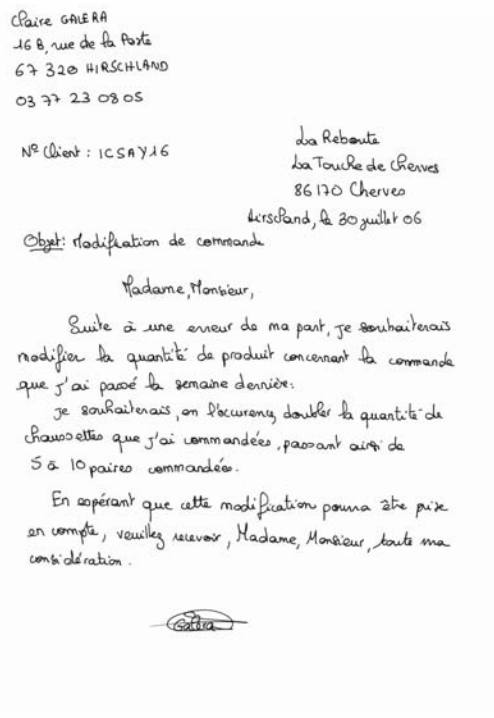 Claire GALERA
16 B, rue de la Poste
67 320 HIRSCHLAND
03 77 23 08 05
N° Client : ICSAY16
La Reboute
La Touche de Cherves
86170 Cherves
Hirschland, le 30 juillet 06
Objet : Modification de commande
Madame, Monsieur,
Suite à une erreur de ma part, je souhaiterais
modifier la quantité de produit concernant la commande
que j'ai passé la semaine dernière.
Je souhaiterais, en l'occurency doubler la quantité de
chaussettes que j'ai commandées, passant ainsi de
5 à 10 paires commandées.
En espérant que cette modification pourra être prise
en compte, veuillez recevoir, Madame, Monsieur, toute ma
considération.
Galéra